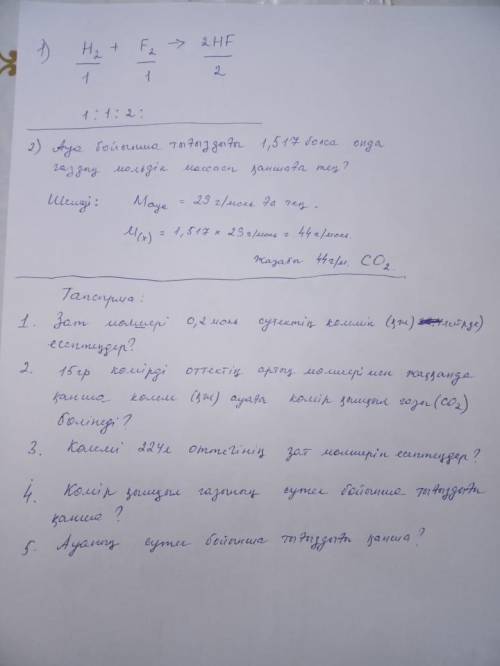 1) H2 + F2 → 2HF
1 1 2
1 : 1 : 2 :
2) Ауа бойынша тығыздығы 1,517 болса онда
газдың мольдік массасы қаншаға тең?
Шешуі: Mауа = 29 г/моль ға тең.
M(x) = 1,517 × 29 г/моль = 44 г/моль.
Жауабы 44 г/м. CO2.
Тапсырма:
1. Зат мөлшері 0,2 моль сутектің көлемін (қж) (литрде)
есептеңдер?
2. 15гр көмірді оттектің артық мөлшерімен жаққанда
қанша көлем (қж) ауада көмір қышқыл газы (CO2)
бөлінеді?
3. Көлемі 224л оттегінің зат мөлшерін есептеңдер?
4. Көмір қышқыл газының сутек бойынша тығыздығы
қанша?
5. Ауаның сутек бойынша тығыздығы қанша?